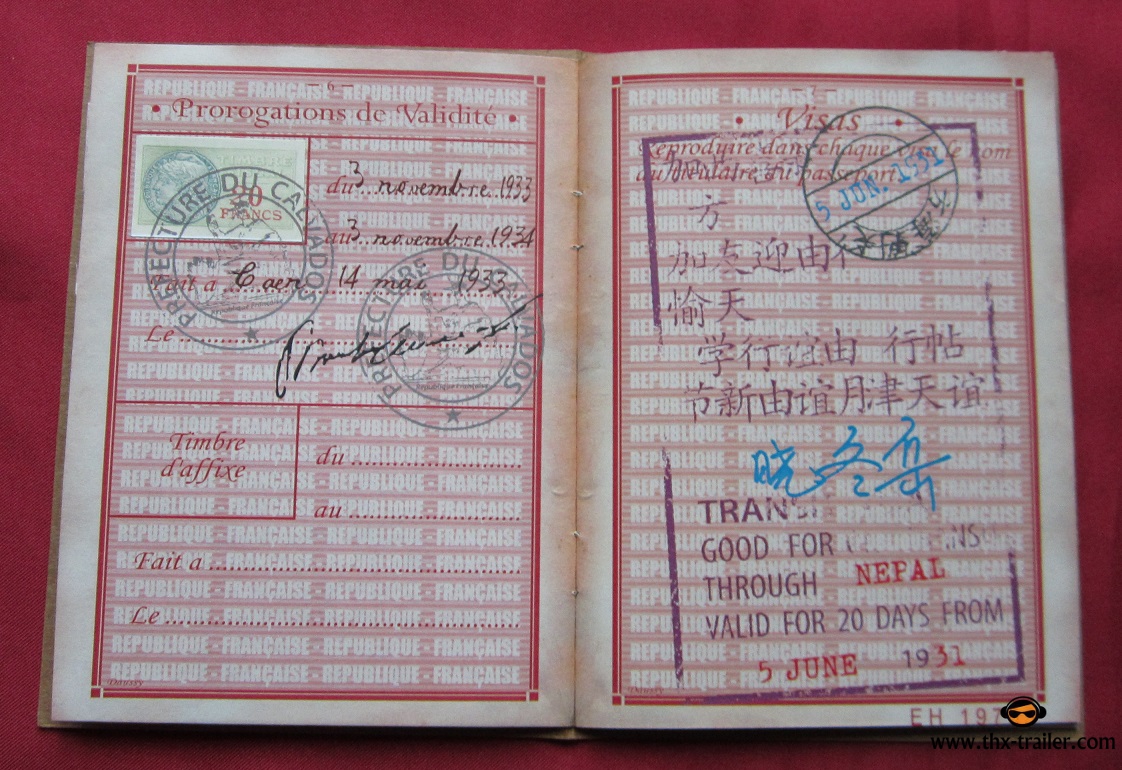 6
• Prorogations de Validité •
TIMBRE
20
FRANCS
PREFECTURE DU CALVADOS
du 3 novembre 1933
au 3 novembre 1934
Fait a Caen 14 mai 1933
Le
PREFECTURE DU CALVADOS
République Française
Timbre
d'affixe
du
au
Fait a
Le
Daussy
7
• Visas •
Reproduire dans chaque visa le nom
du titulaire du passeport
5 JUN. 1931
方
加友迎由
愉天
学行谊由 行帖
节新由谊月津天谊
晓冬岳
GOOD FOR
THROUGH NEPAL
VALID FOR 20 DAYS FROM
5 JUNE 1931
Daussy
EH 197
www.thx-trailer.com
REPUBLIQUE - FRANÇAISE